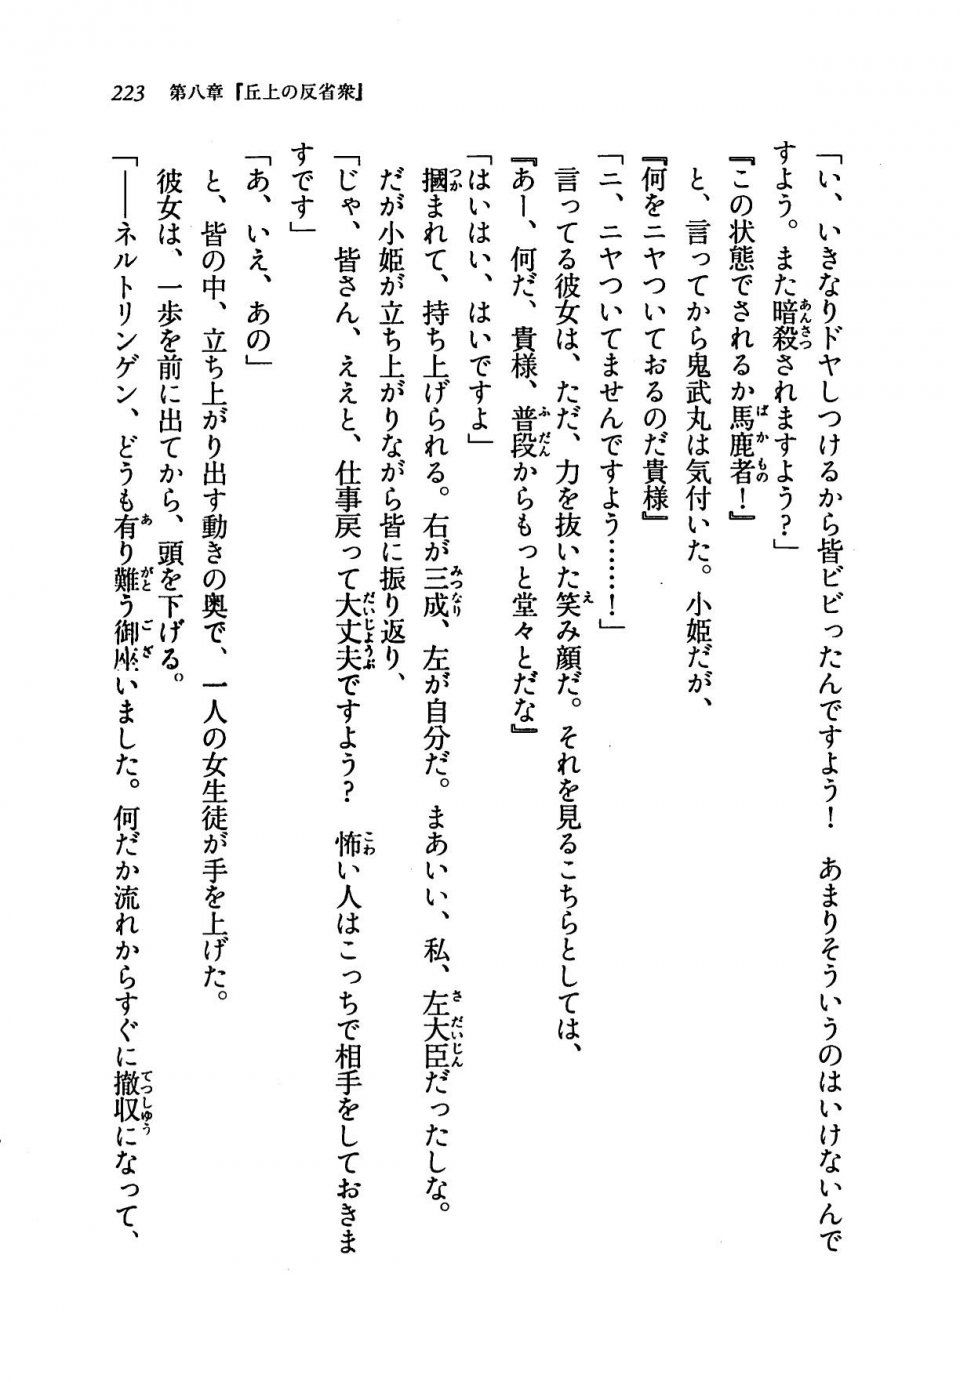 223　第八章『丘上の反省衆』
「い、いきなりドヤしつけるから皆ビビったんですよう！　あまりそういうのはいけないんで
すよう。また暗殺されますよう？」
『この状態でされるか馬鹿者！』
と、言ってから鬼武丸は気付いた。小姫だが、
『何をニヤついておるのだ貴様』
「ニ、ニヤついてませんですよう……！」
言ってる彼女は、ただ、力を抜いた笑み顔だ。それを見るこちらとしては、
『あー、何だ、貴様、普段からもっと堂々とだな』
「はいはい、はいですよ」
摑まれて、持ち上げられる。右が三成、左が自分だ。まあいい、私、左大臣だったしな。
だが小姫が立ち上がりながら皆に振り返り、
「じゃ、皆さん、ええと、仕事戻って大丈夫ですよう？　怖い人はこっちで相手をしておきま
すです」
「あ、いえ、あの」
と、皆の中、立ち上がり出す動きの奥で、一人の女生徒が手を上げた。
彼女は、一歩を前に出てから、頭を下げる。
「――ネルトリンゲン、どうも有り難う御座いました。何だか流れからすぐに撤収になって、